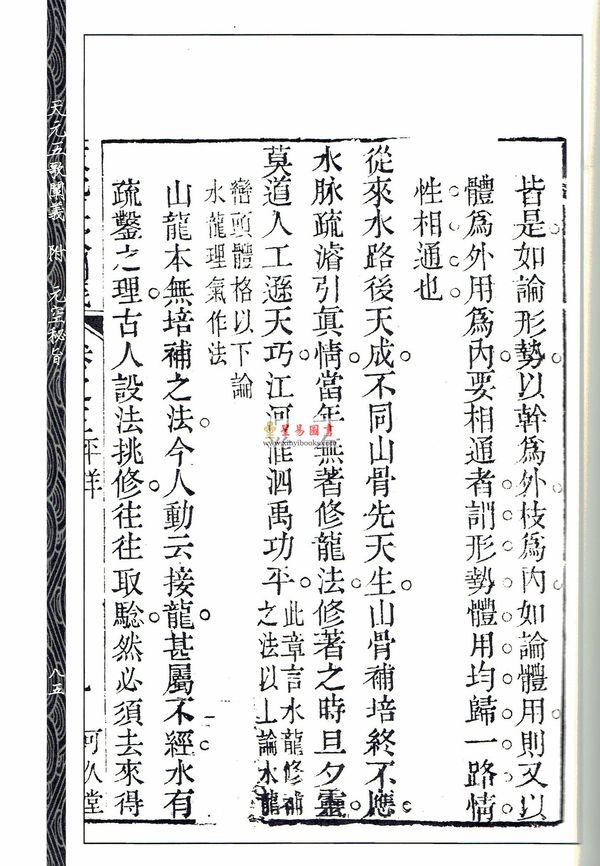 皆是如論形勢以幹爲外枝爲內如論體用則又以
體爲外用爲內要相通者謂形勢體用均歸一路情
性相通也
從來水路後天成不同山骨先天生山骨補培終不應
水脉疏濬引眞情當年無著修龍法修著之時旦夕靈
莫道人工遜天巧江河淮泗禹功平此章言水龍修補
之法以上論水龍
巒頭體格以下論
水龍理氣作法
山龍本無培補之法今人動云接龍甚屬不經水有
疏鑿之理古人設法挑修往往取騐然必須去來得
卷之三平洋
可久堂
天元五歌闡義 附 元空秘旨
八五
星易圖書
www.xinyibooks.com